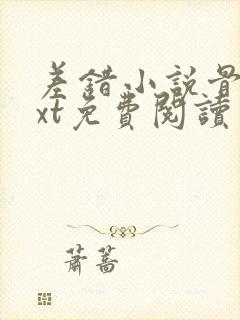 差錯小說最
xt免費閱讀
蕭蒿